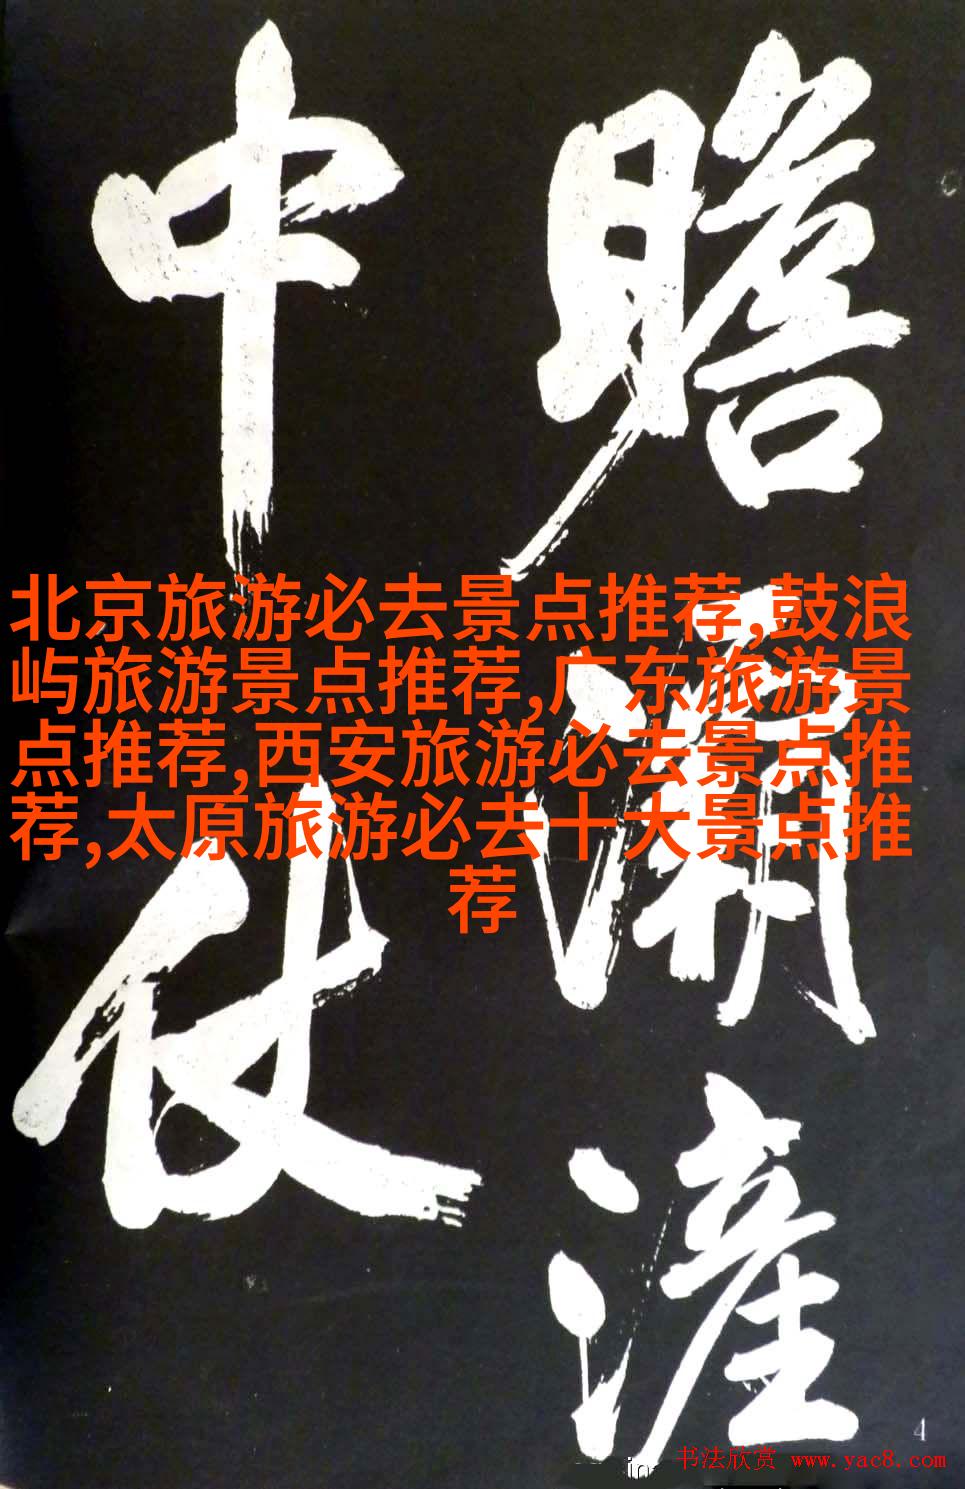 瞻浦漄
中仗
北京旅游必去景点推荐,鼓浪
屿旅游景点推荐,广东旅游景
点推荐,西安旅游必去景点推
荐,太原旅游必去十大景点推
荐
4
书法欣赏 www.yac8.com